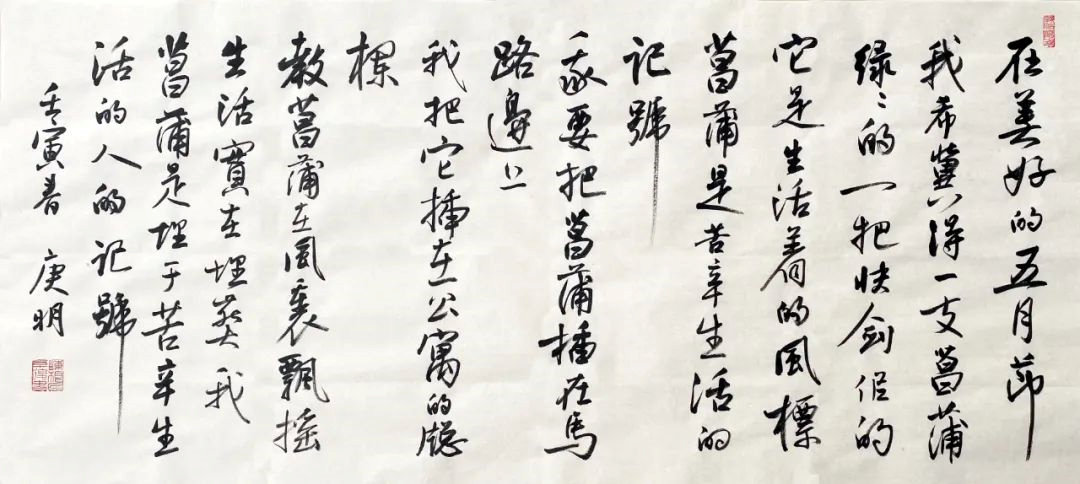 在美好的五月節
我希冀得一支菖蒲
绿々的一把快劍佀的
它是生活着的風標
菖蒲是苦辛生活的
記號
我要把菖蒲插在馬
路邊上
我把它插在公寓的牕
教菖蒲在風裏飄摇
生活實在埋葬我
菖蒲是埋于苦辛生
活的人的記號
壬寅春 庚明